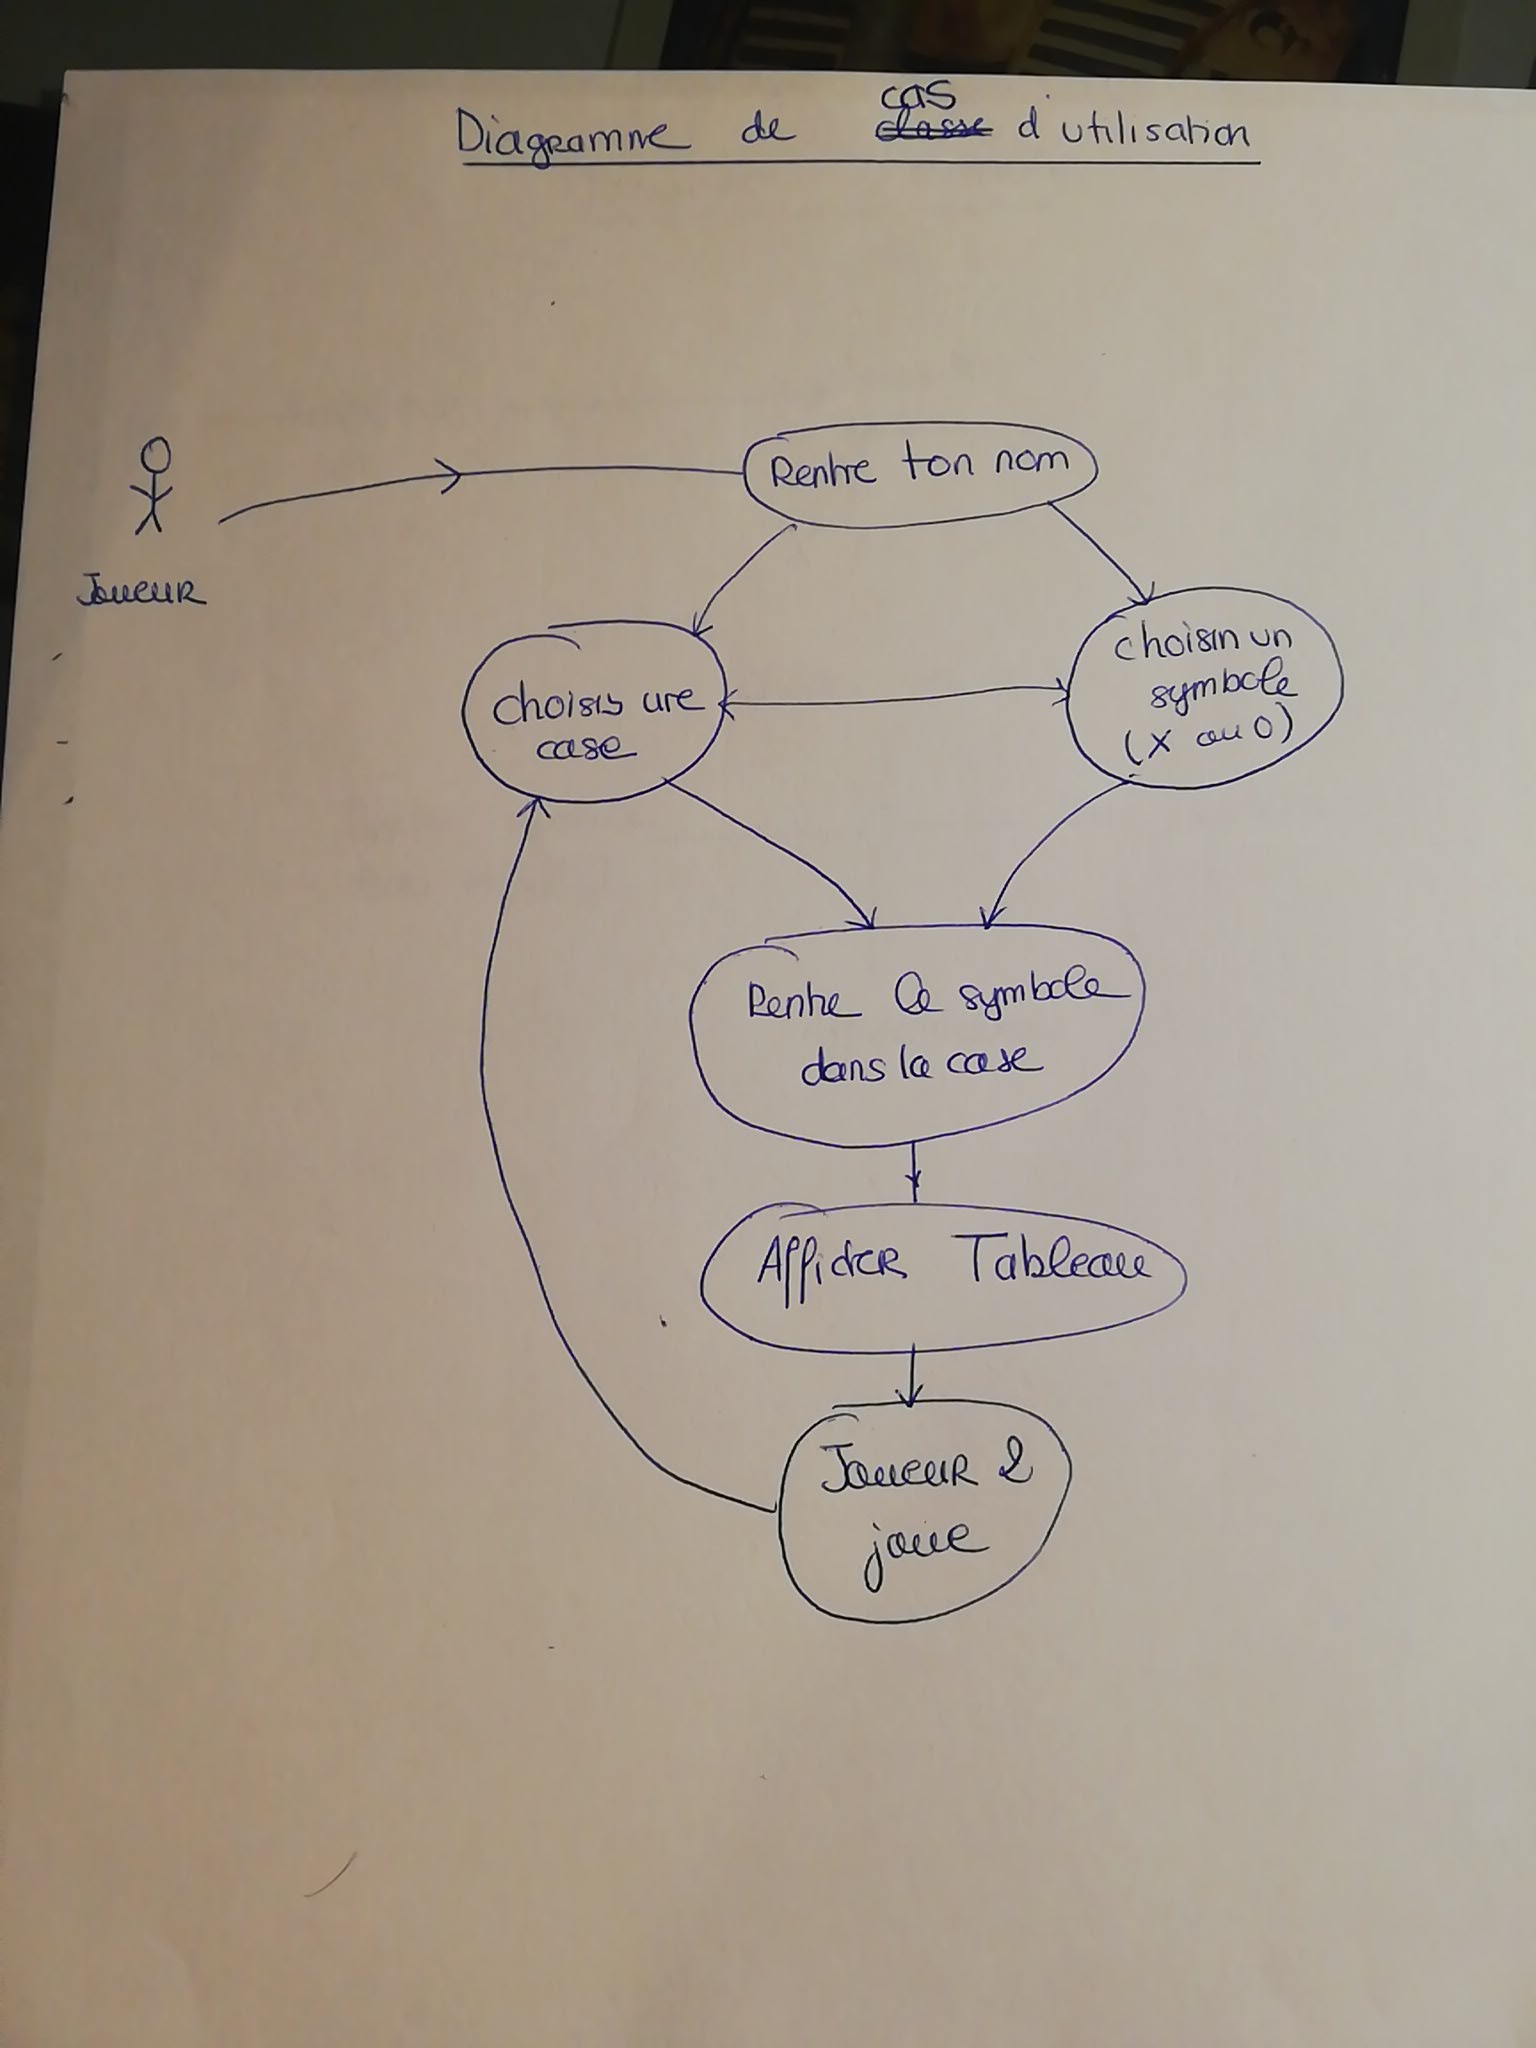 Diagramme de cas d'utilisation
Rentre ton nom
Joueur
choisis une
case
choisir un
symbole
(X ou O)
Rentre le symbole
dans la case
Afficher Tableau
Joueur 2
joue